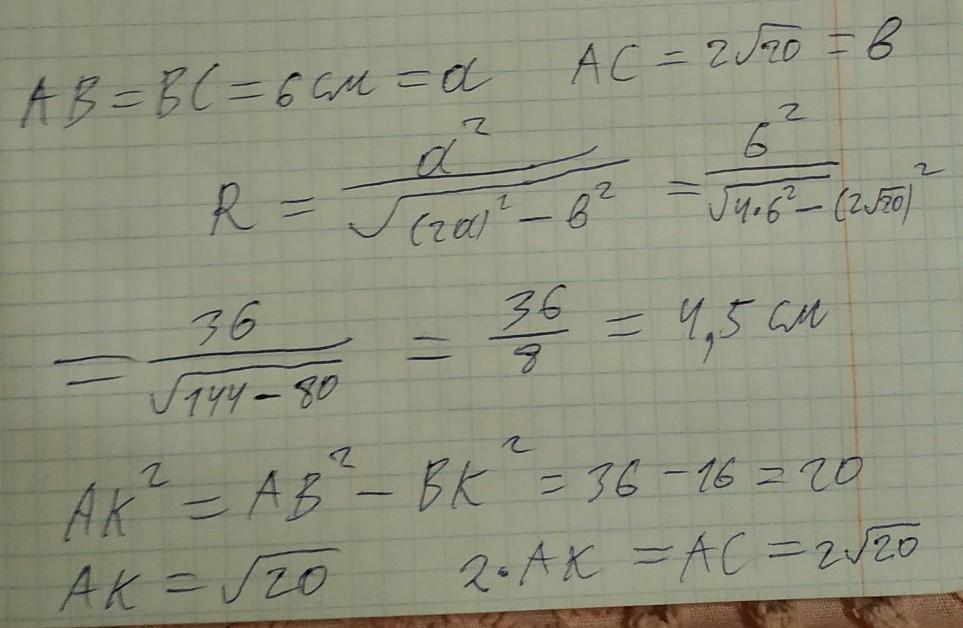 AB = BC = 6 см = a   AC = 2√20 = в
R = a² / √((2a)² − в²) = 6² / √(4·6² − (2√20)²)
= 36 / √(144 − 80) = 36 / 8 = 4,5 см
AK² = AB² − BK² = 36 − 16 = 20
AK = √20   2·AK = AC = 2√20